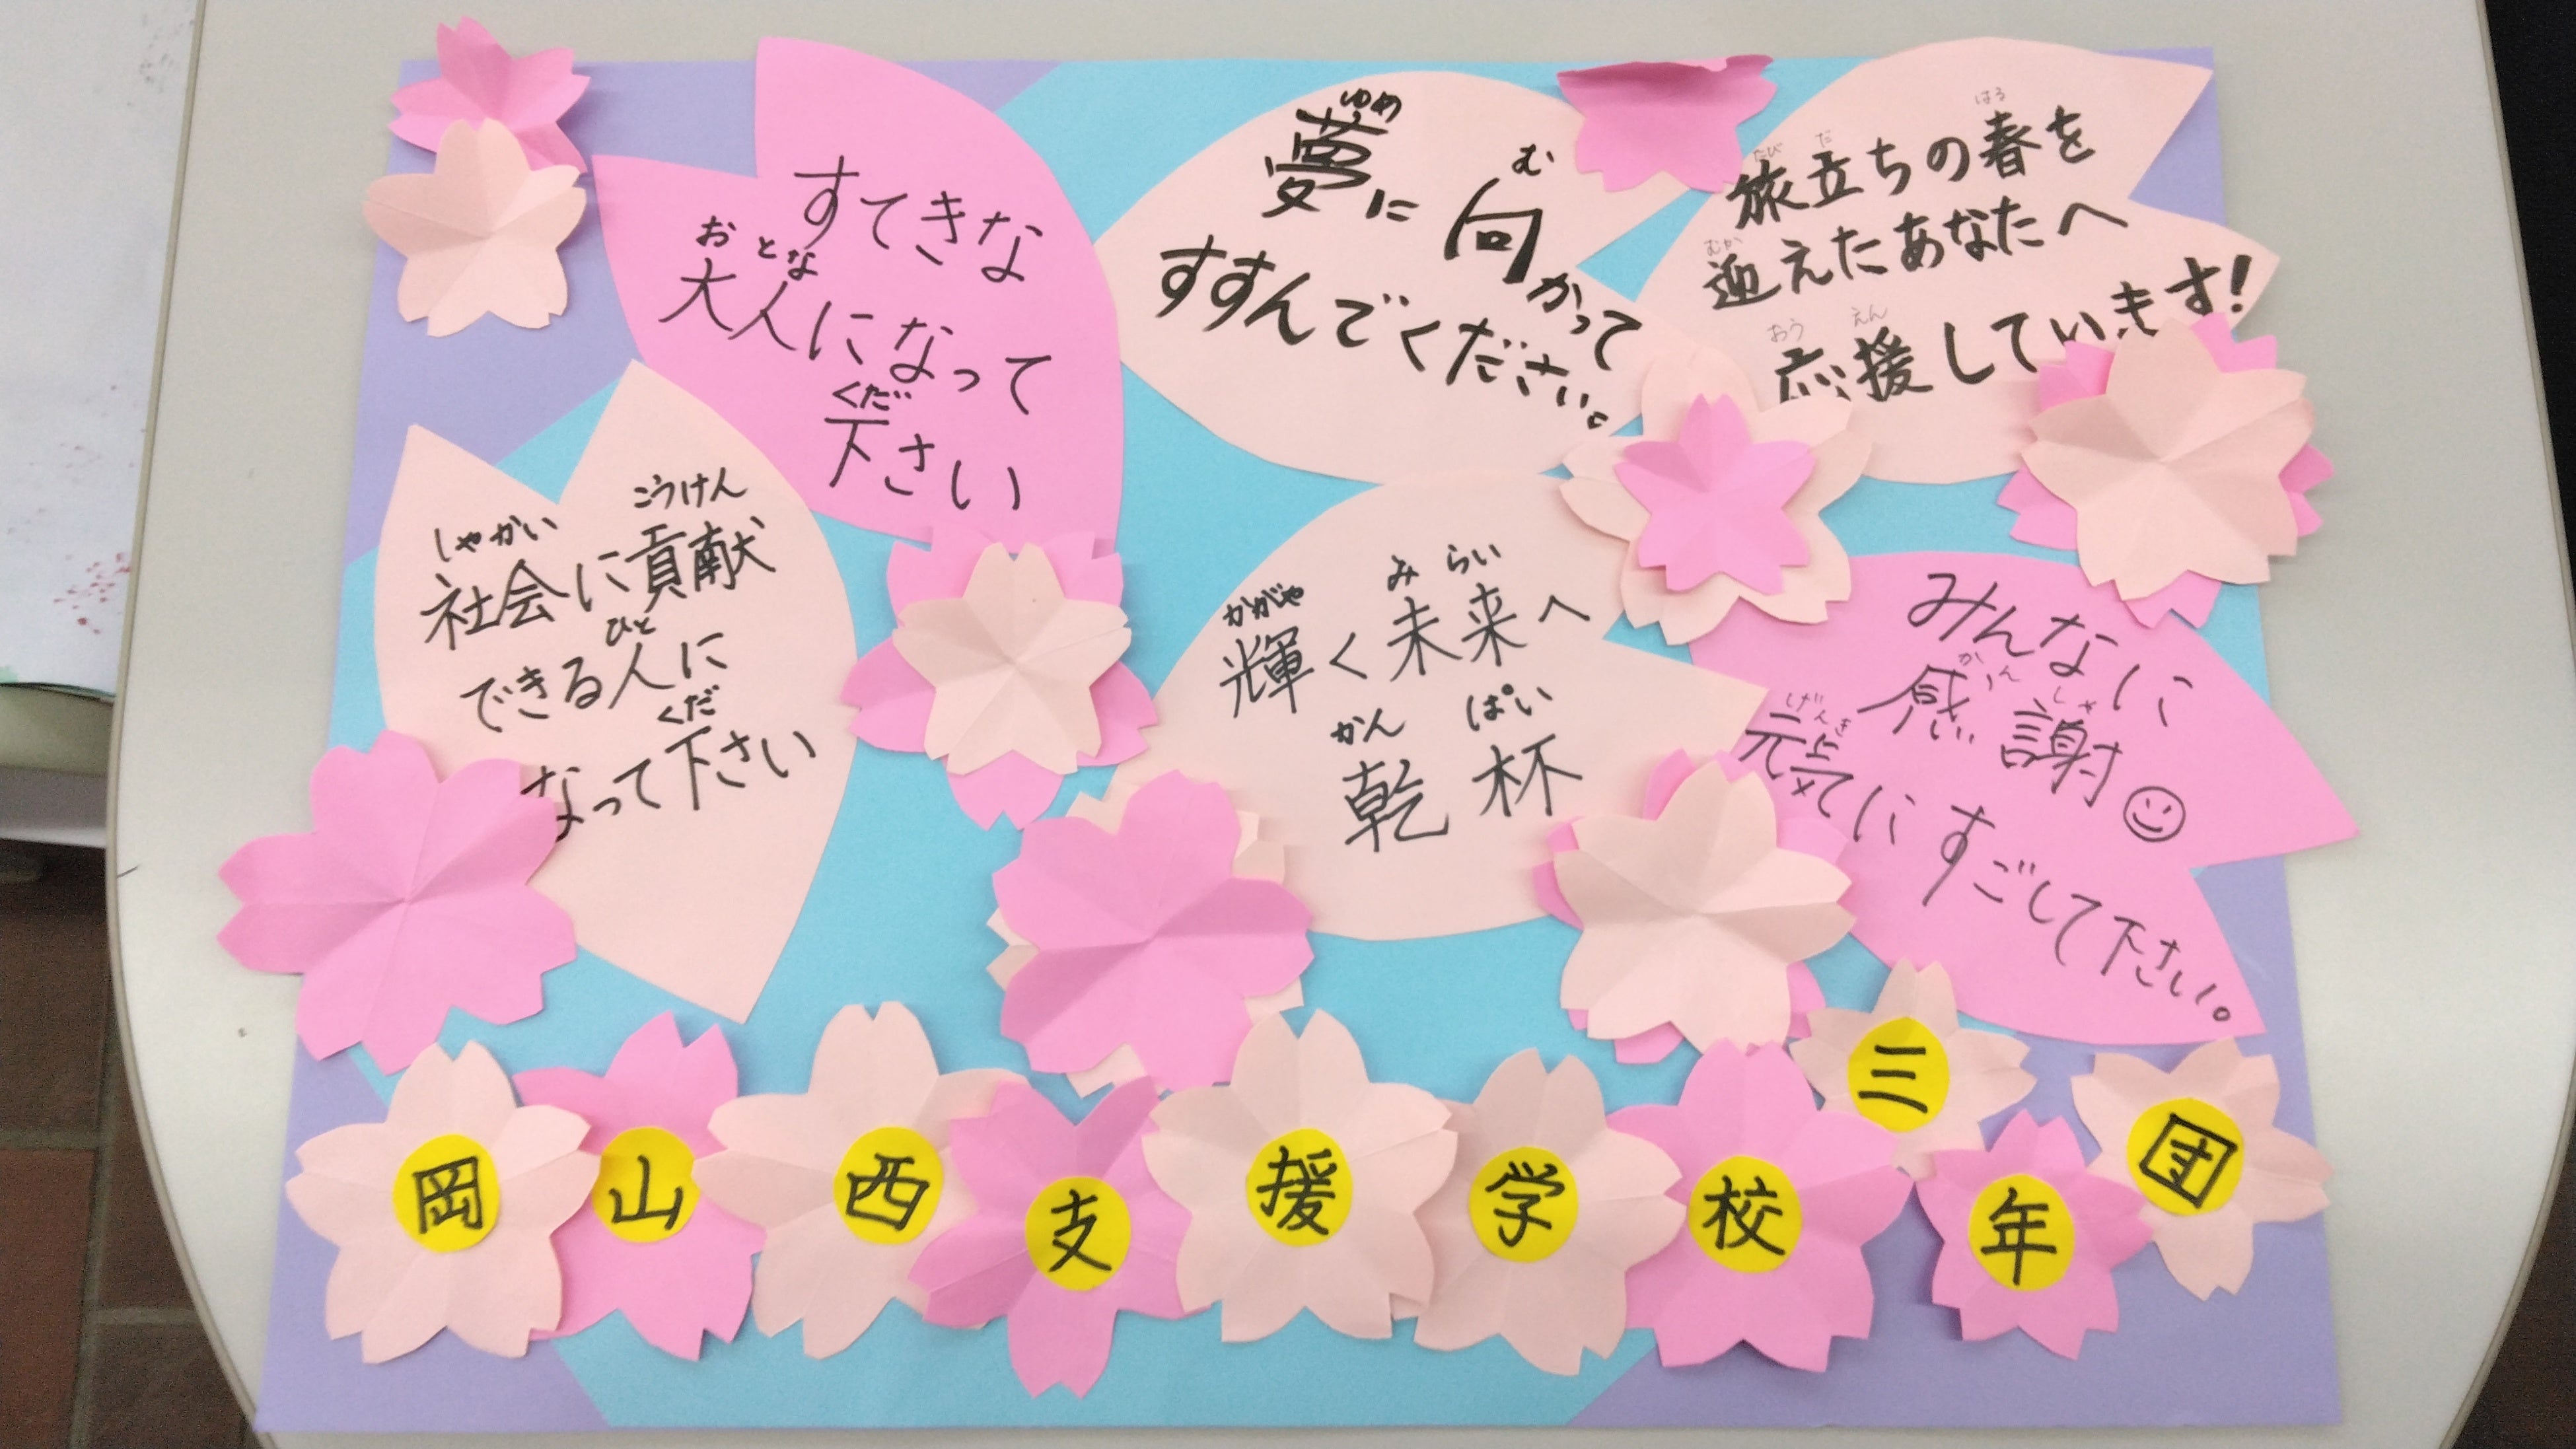 すてきな
おとな
大人になって
くだ
下さい
ゆめ
夢に向かって
む
すすんでください。
はる
たび だ
旅立ちの春を
むか
迎えたあなたへ
おう えん
応援していきます!
こうけん
しゃかい
社会に貢献
ひと
できる人に
くだ
なって下さい
かがや み らい
輝く未来へ
かん ぱい
乾杯
みんなに
かん しゃ
感謝
げんき
元気にすごして下さい。
岡山西支援学校三年団